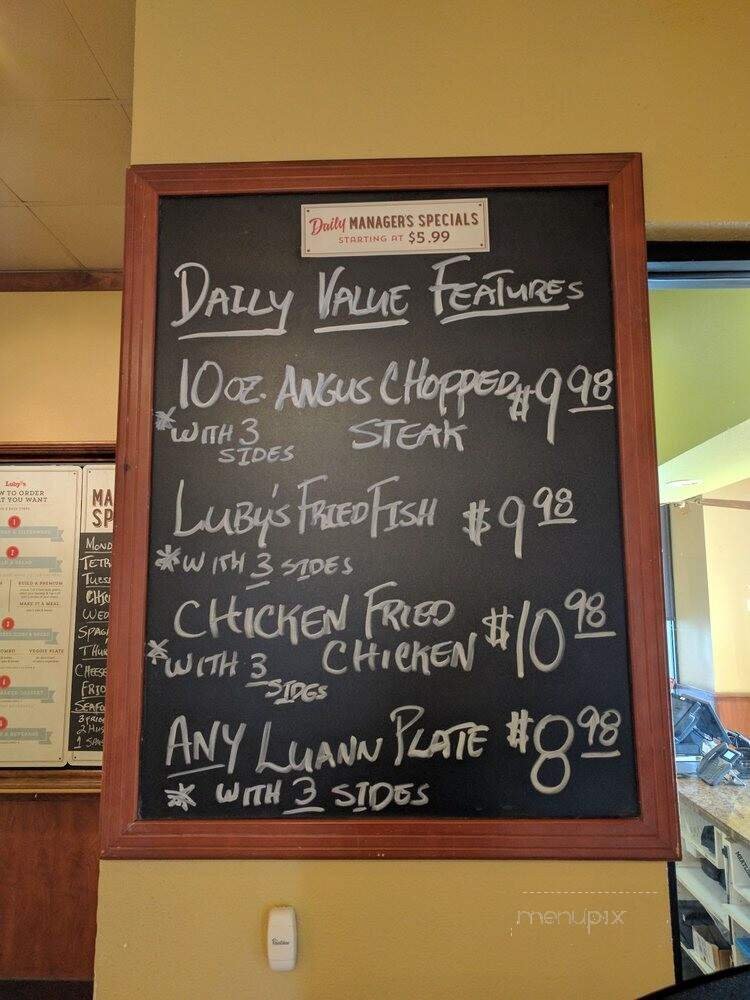 Daily MANAGER'S SPECIALS
STARTING AT $5.99
DAILY VALUE FEATURES
10 OZ. ANGUS CHOPPED $9.98
*WITH 3 STEAK
SIDES
LUBY'S FRIED FISH $9.98
*WITH 3 SIDES
CHICKEN FRIED $10.98
*WITH 3 CHICKEN
SIDES
ANY LUANN PLATE $8.98
* WITH 3 SIDES
Luby's
W TO ORDER
T YOU WANT
1
2
BUILD A PREMIUM
MAKE IT A MEAL
3
VEGGIE PLATE
4
MA
SP
MOND
TETR
TUES
CHK
WED
SPAG
THUR
CHEESE
FRID
SEAFO
menupix